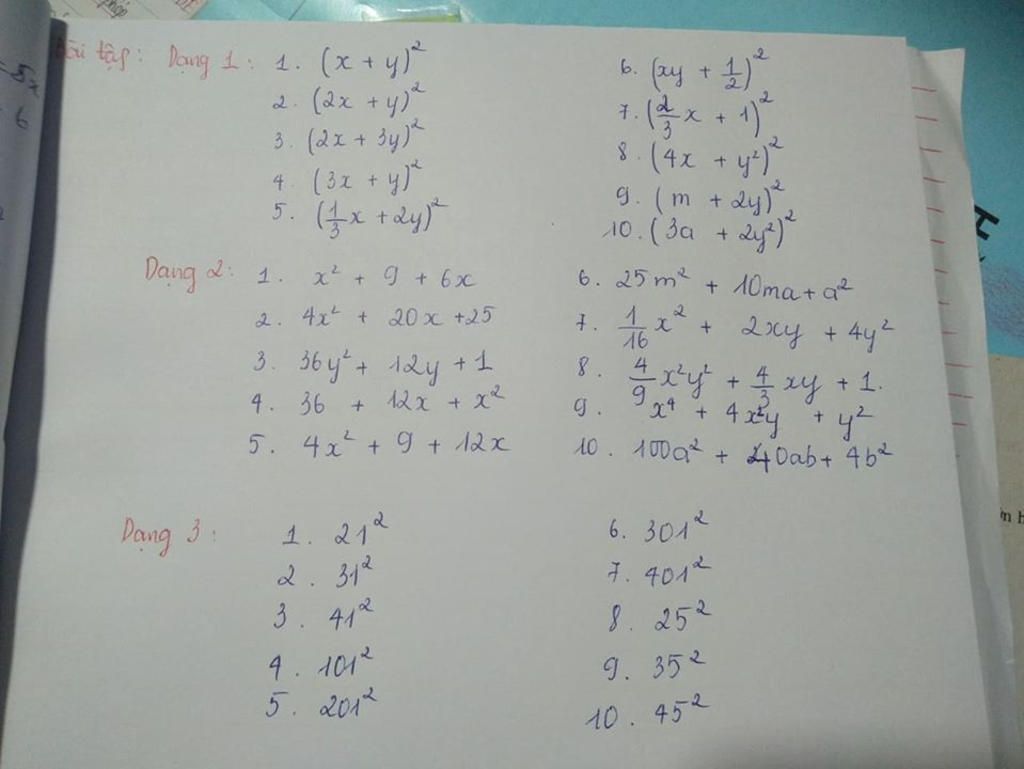 Bài tập: Dạng 1: 1. (x + y)²
2. (2x + y)²
3. (2x + 3y)²
4. (3x + y)²
5. (1/3 x + 2y)²
6. (xy + 1/2)²
7. (2/3 x + 1)²
8. (4x + y²)²
9. (m + 2y)²
10. (3a + 2y²)²
Dạng 2: 1. x² + 9 + 6x
2. 4x² + 20x + 25
3. 36y² + 12y + 1
4. 36 + 12x + x²
5. 4x² + 9 + 12x
6. 25m² + 10ma + a²
7. 1/16 x² + 2xy + 4y²
8. 4/9 x²y² + 4/3 xy + 1.
9. x⁴ + 4x²y + y²
10. 100a² + 40ab + 4b²
Dạng 3: 1. 21²
2. 31²
3. 41²
4. 101²
5. 201²
6. 301²
7. 401²
8. 25²
9. 35²
10. 45²